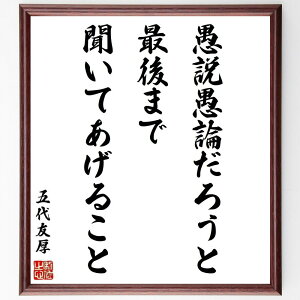 愚説愚論だろうと
最後まで
聞いてあげること
五代友厚